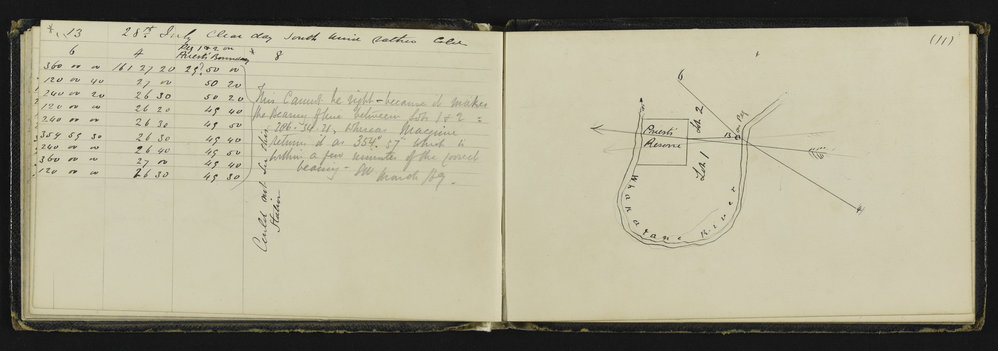 * 13 28th July Clear day South wind rather cold
6 4 Peg 1 & 2 on Priest's Boundary * 8
360 00 00 161 27 20 291 50 00
120 00 40 27 00 50 20
240 00 20 26 30 50 20
120 00 00 26 20 49 40
240 00 00 26 30 49 50
359 59 30 26 30 49 40
240 00 00 26 40 49 50
360 00 00 27 00 49 40
120 00 00 26 30 49 30
Could not see this Station
This cannot be right - because it makes
the bearing of line between Lots 1 & 2 =
206° 34' 21", whereas Maclure
returns it as 354° 57' which is
within a few minutes of the correct
bearing -
(11)
6
4
Priests
Reserve
Lot 2
Lot 1
B
Peg
Whakatane River